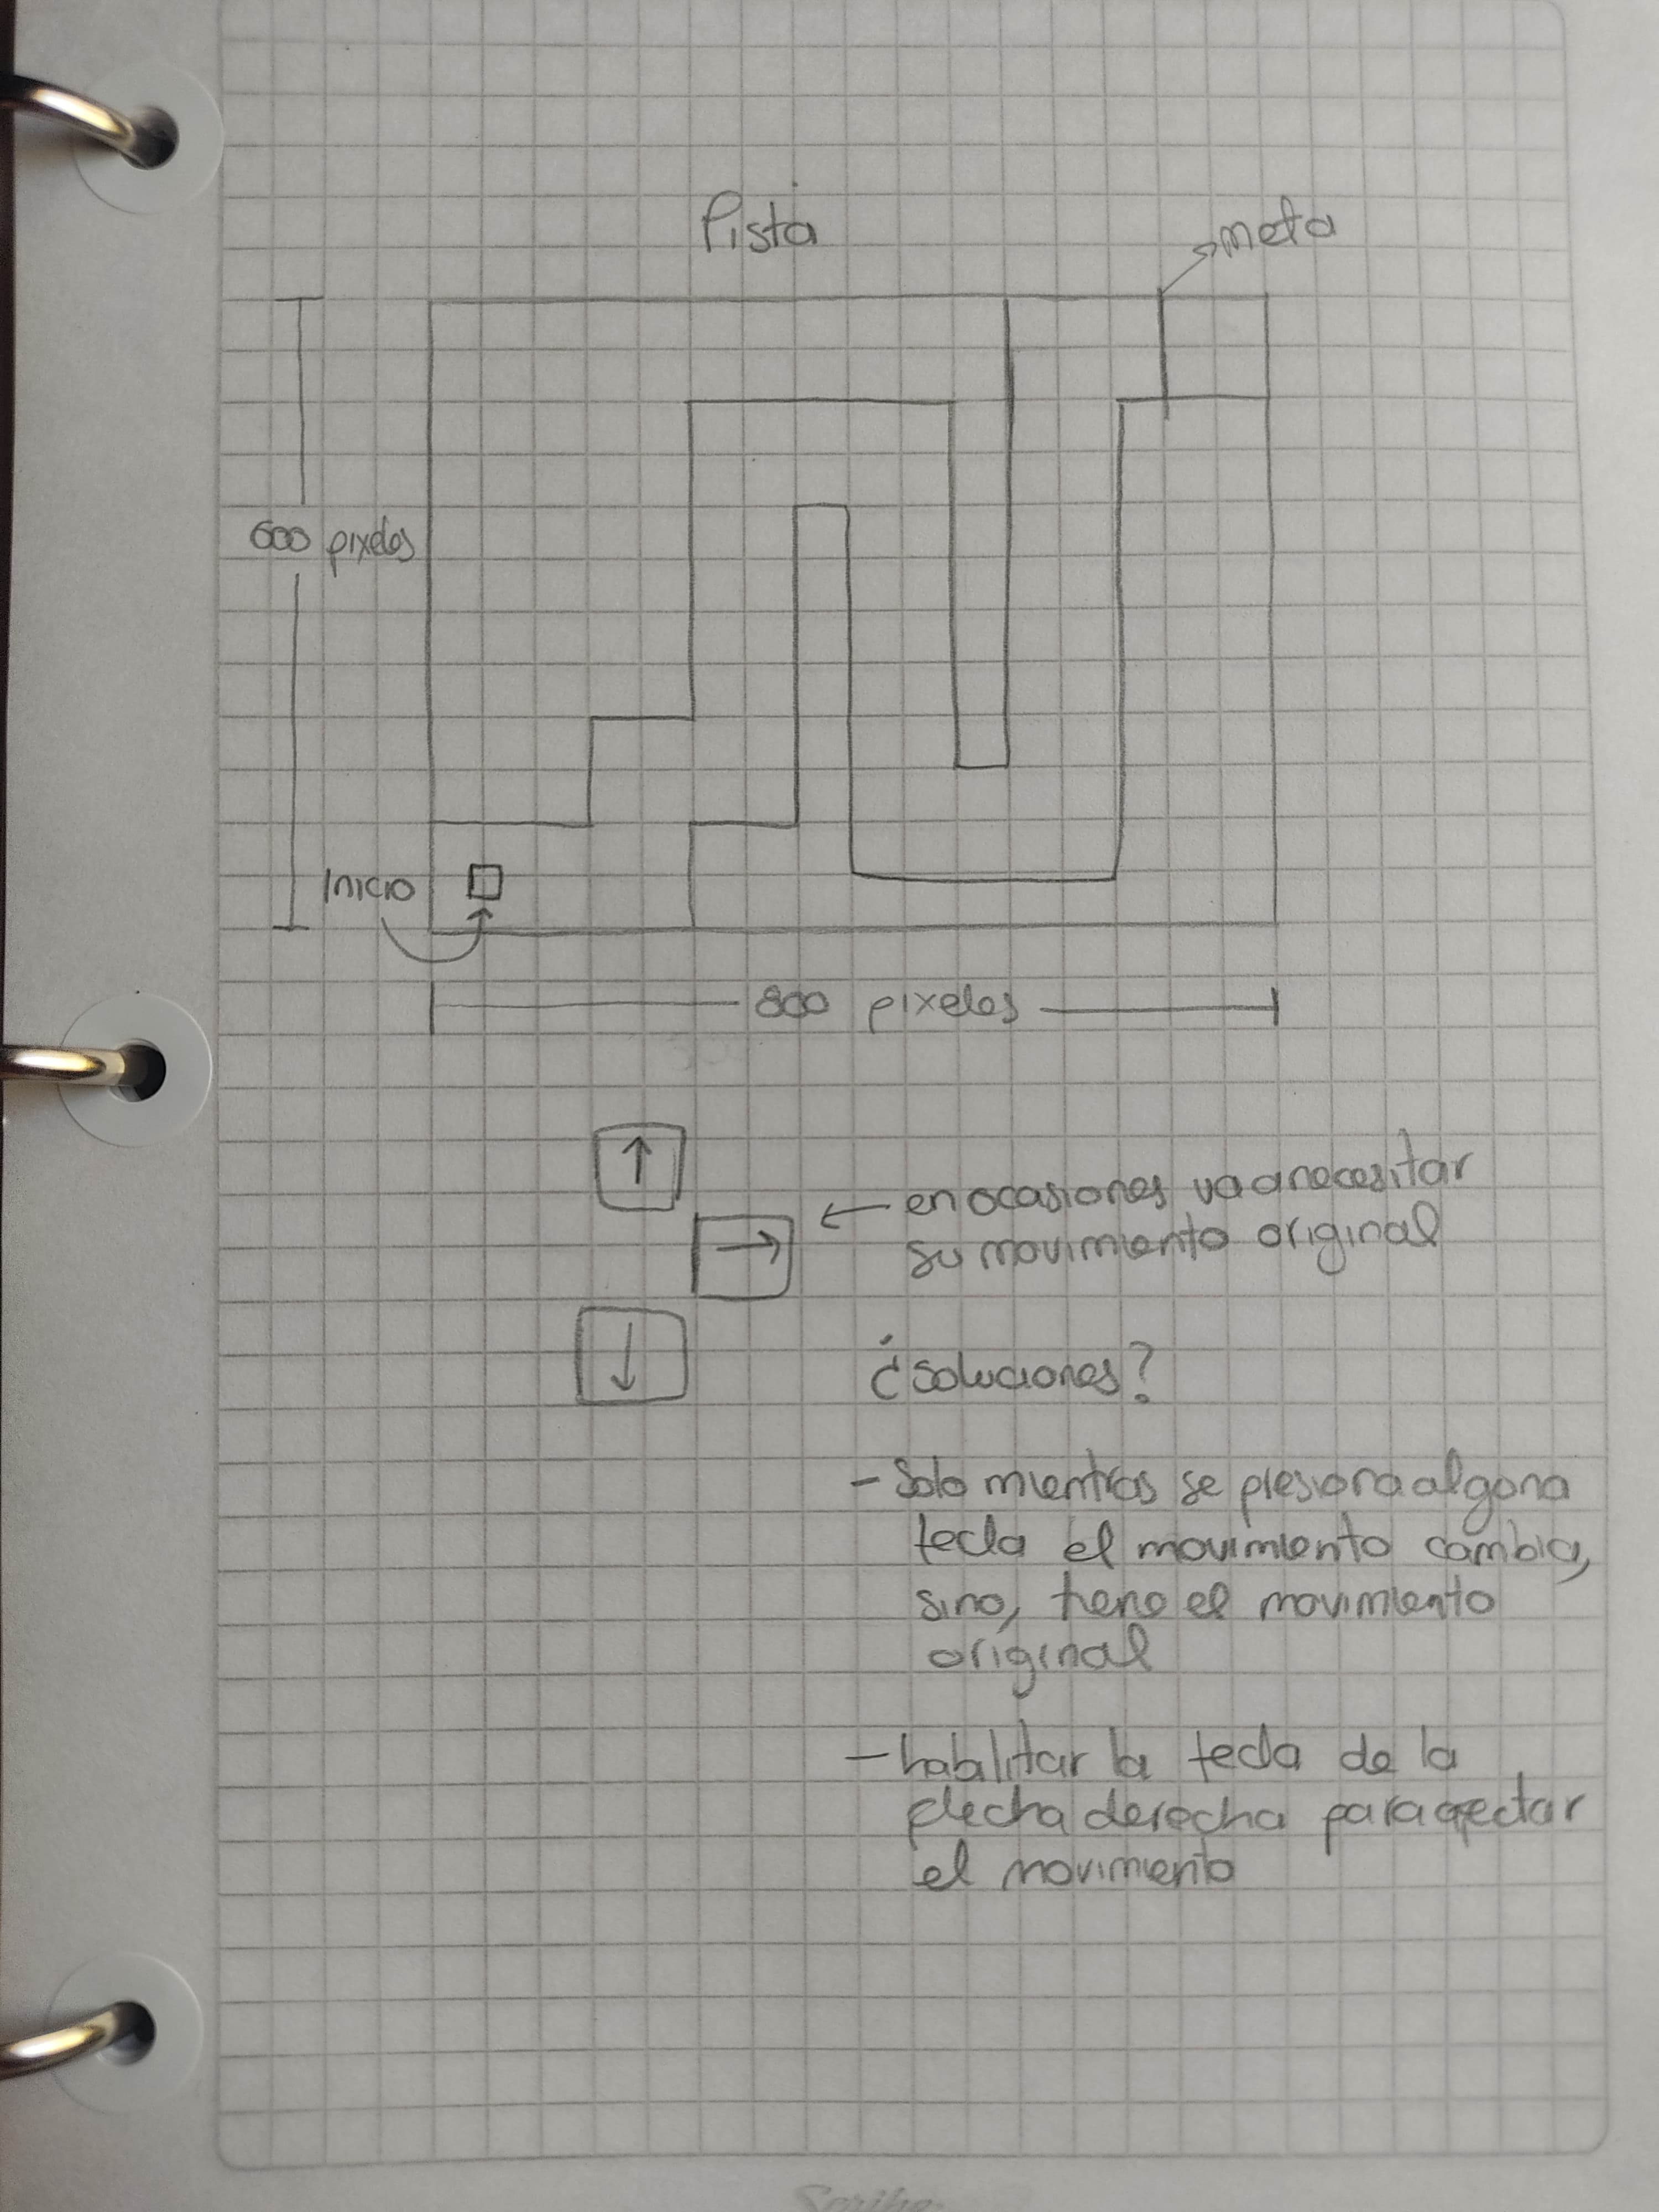 Pista
meta
600 pixeles
Inicio
800 pixeles
en ocasiones va a necesitar
su movimiento original
¿soluciones?
- Solo mientras se presiona alguna
tecla el movimiento cambia,
sino, tiene el movimiento
original
- habilitar la tecla de la
flecha derecha para afectar
el movimiento
Scribe